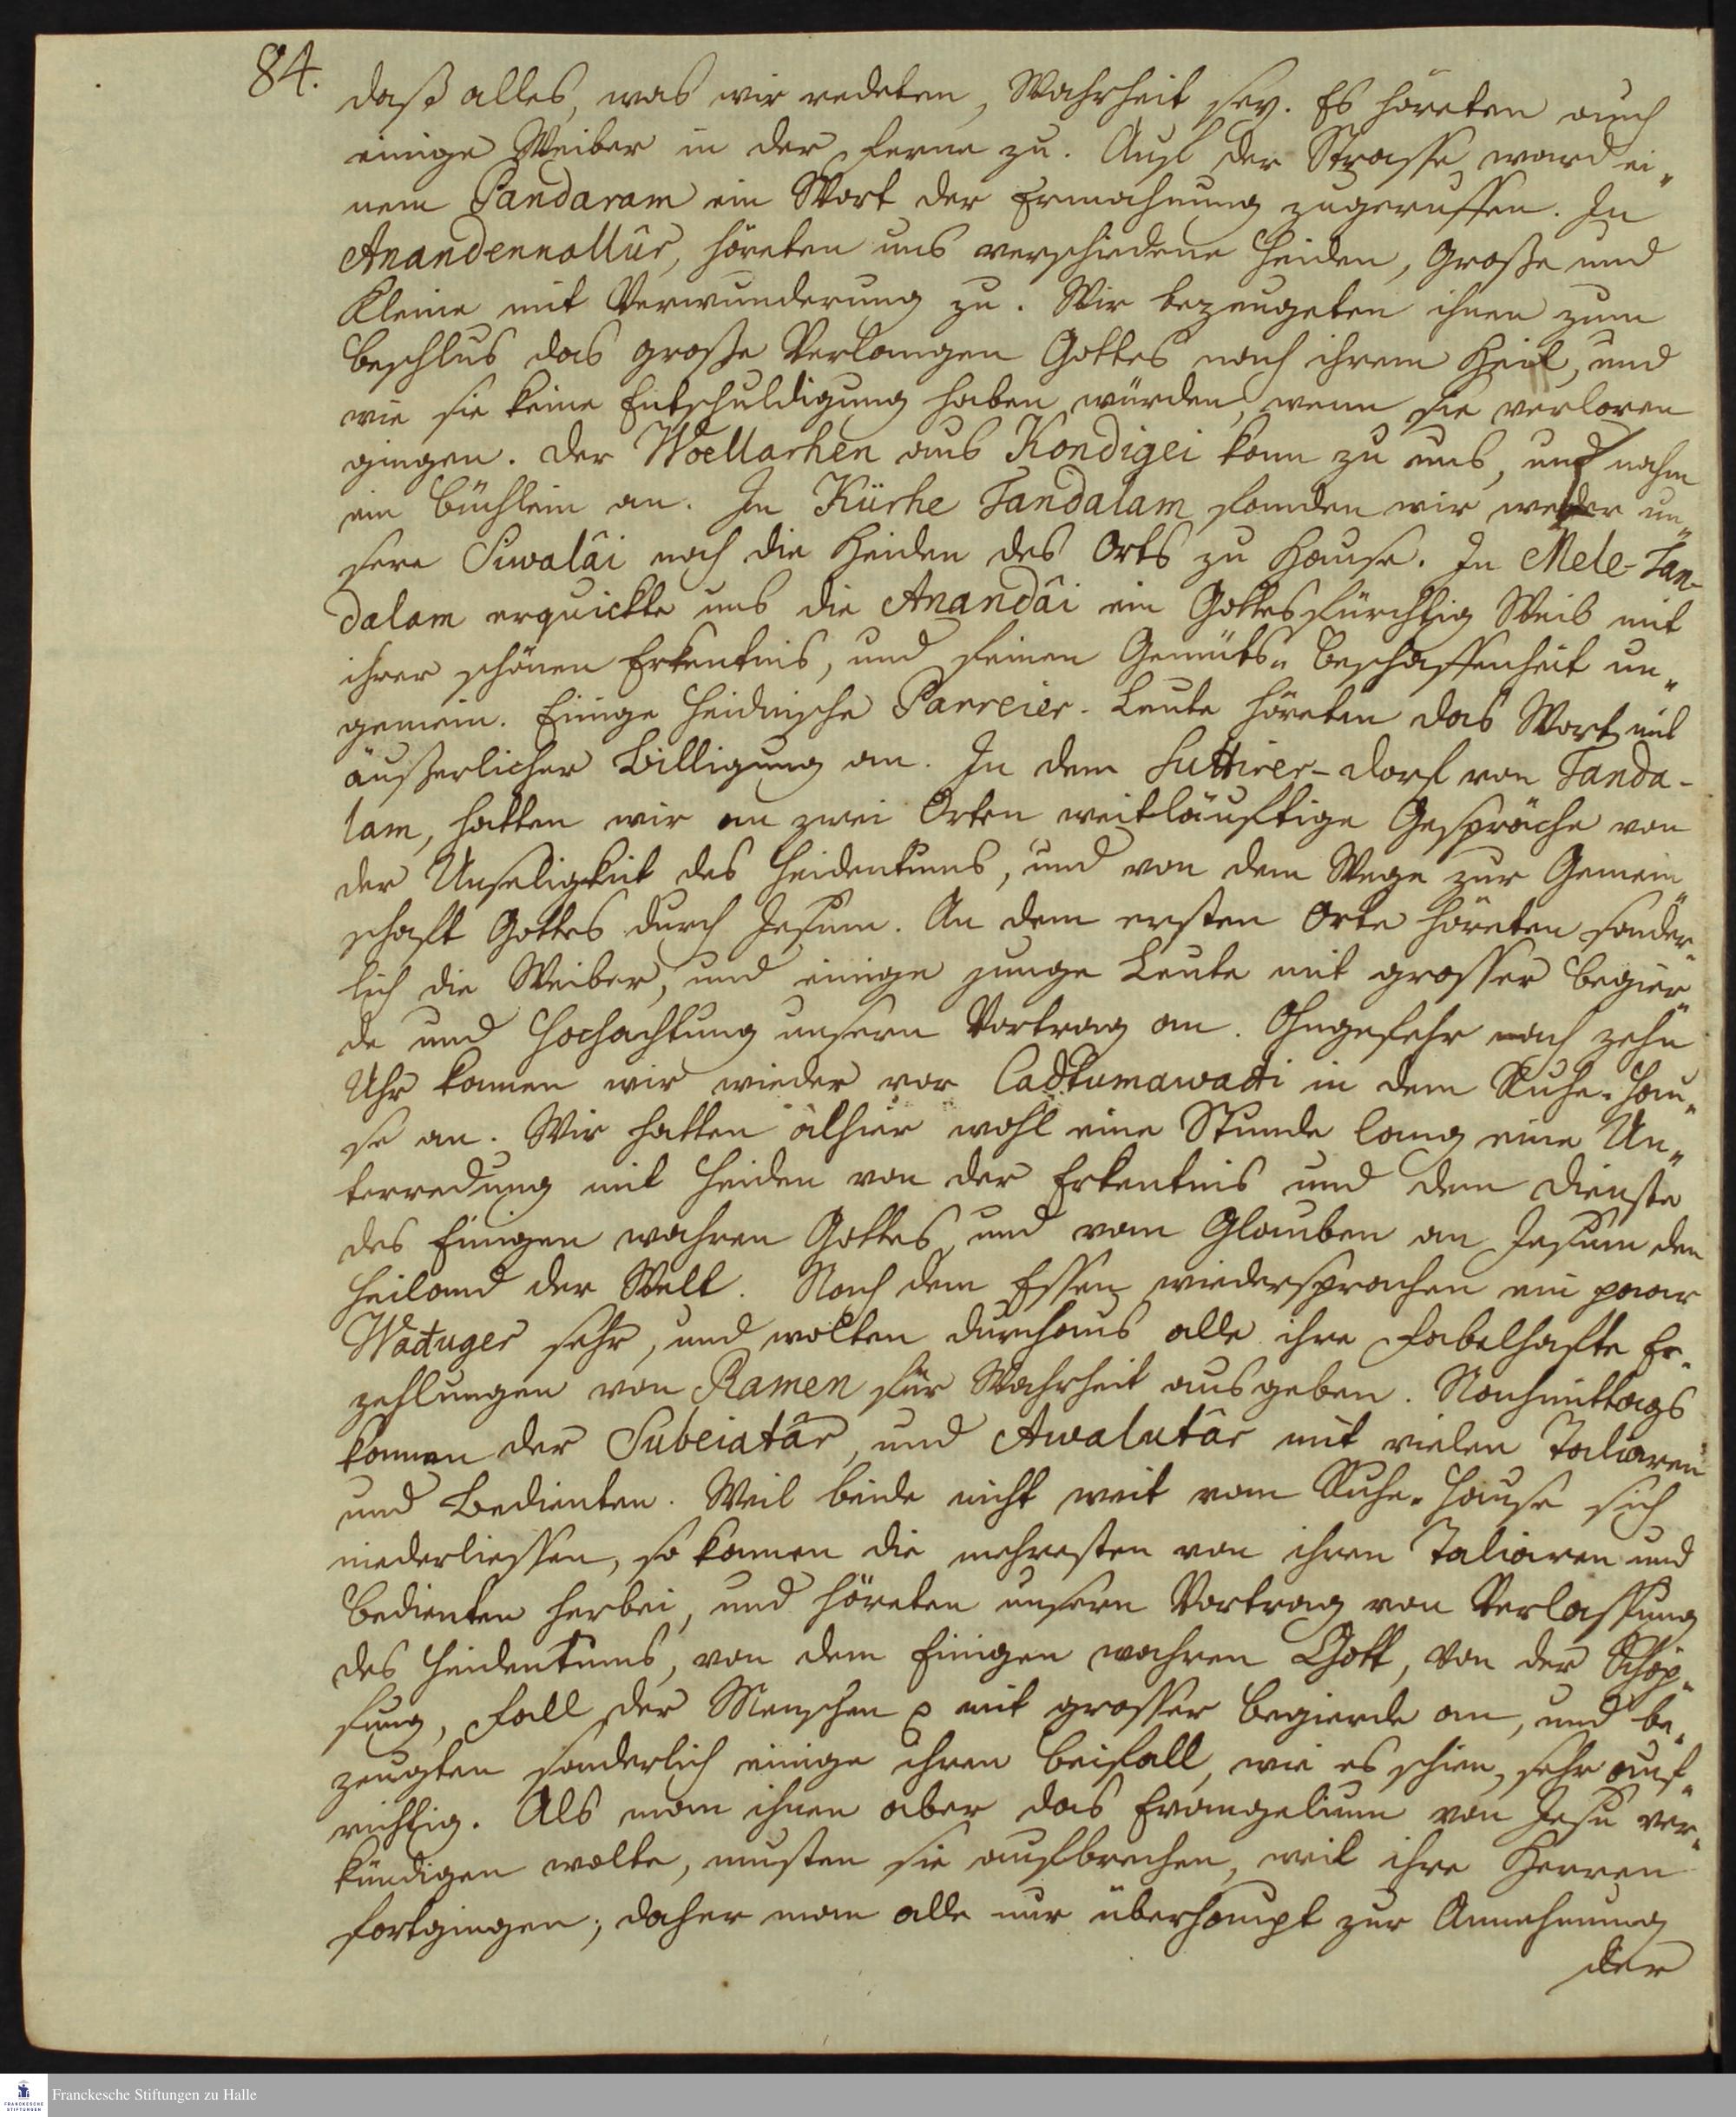 84.
daß alles, was wir redeten, Wahrheit sey. Es höreten auch
einige Weiber in der Ferne zu. Auf der Strasse ward ei„
nem Pandaram ein Wort der Ermahnung zugeruffen. In
Anandennallûr, höreten uns verschiedene Heiden, Große und
Kleine mit Verwunderung zu. Wir bezeugeten ihnen zum
Beschlus das große Verlangen Gottes nach ihrem Heil, und
wie sie keine Entschuldigung haben würden, wenn sie verloren
gingen. Der Woellarhen aus Kondigei kam zu uns, und nahm
ein Büchlein an. In Kürhe Tandalam fanden wir weder un„
sere Siwalâi noch die Heiden des Orts zu Hause. In Mele-Tan-
dalam erquickte uns die Anandâi ein Gottesfürchtig Weib mit
ihrer schönen Erkentnis, und feinen Gemüts„ Beschaffenheit un„
gemein. Einige heidnische Parreier-Leute höreten das Wort mit
äußerlicher Billigung an. In dem Suttirer-Dorf von Tanda-
lam, hatten wir an zwei Orten weitläuftige Gespräche von
der Unseligkeit des Heidentums, und von dem Wege zur Gemein„
schaft Gottes durch Jesum. An dem ersten Orte höreten sonder„
lich die Weiber, und einige junge Leute mit grosser Begier„
de und Hochachtung unsern Vortrag an. Ohngefehr nach zehn
Uhr kamen wir wieder vor Cadtumawadi in dem Ruhe-Hau„
se an. Wir hatten alhier wohl eine Stunde lang eine Un„
terredung mit Heiden von der Erkentnis und dem Dienste
des Einigen wahren Gottes, und vom Glauben an Jesum den
Heiland der Welt. Nach dem Essen wiedersprachen ein paar
Waduger sehr, und wolten durchaus alle ihre fabelhafte Er„
zehlungen von Ramen für Wahrheit ausgeben. Nachmittags
kamen der Subeiatâr, und Awalutâr mit vielen Taliaren
und Bedienten. Weil beide nicht weit vom Ruhe-Hause sich
niederliessen, so kamen die mehresten von ihren Taliaren und
Bedienten herbei, und höreten unsern Vortrag von Verlassung
des Heidentums, von dem Einigen wahren Gott, von der Schöp„
fung, Fall der Menschen p mit grosser Begierde an, und be„
zeugten sonderlich einige ihren Beifall, wie es schien, sehr auf„
richtig. Als man ihnen aber das Evangelium von Jesu ver„
kündigen wolte, musten sie aufbrechen, weil ihre Herren
fortgingen; daher man alle nur überhaupt zur Annehmung
der
Franckesche Stiftungen zu Halle
FRANCKESCHE STIFTUNGEN